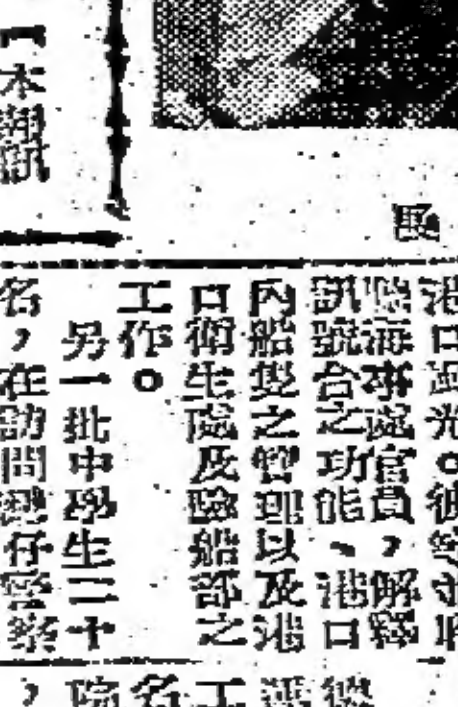 本報訊
港口風光。彼等並
海事處官員，解釋
訊號台之功能、港口
內船隻之管理以及港
口衛生處及驗船部之
工作。
另一批中學生二十
名，在訪問灣仔警察
，院名工